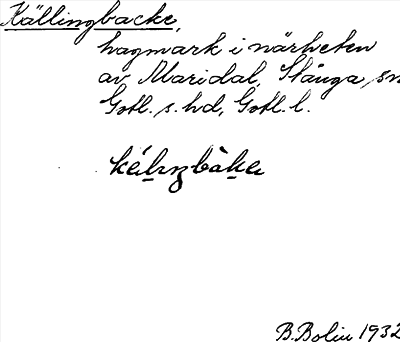 Källingbacke,
hagmark i närheten
av Maridal, Stånga sn
Gotl. s. hd, Gotl. l.
B. Bolin 1932